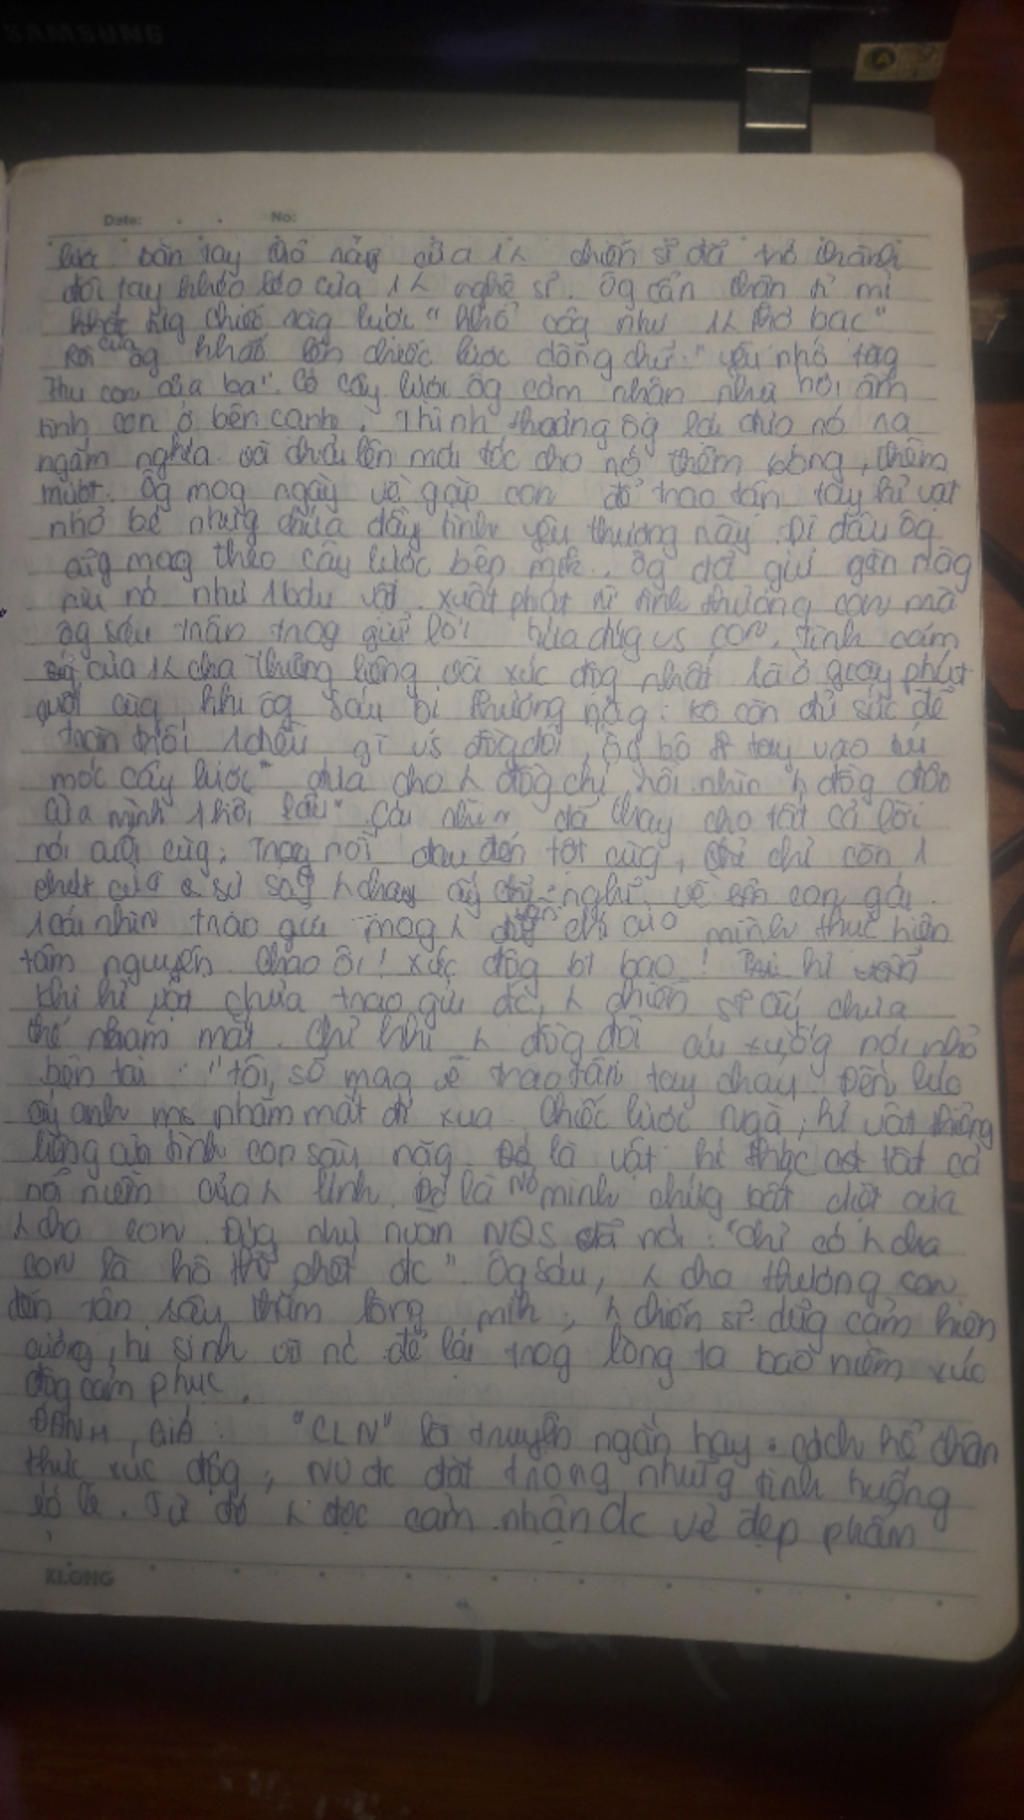 SAMSUNG
Date: . . No:
bàn tay thô nág của 1 k chiến sĩ đã trở thành
đôi tay khéo léo của 1 k nghệ sĩ. Ôg cẩn thận tỉ mỉ
từg chiếc răg lược "khổ côg như 1 k thợ bạc"
Rồi của ôg khắc lên chiếc lược dòng chữ: "yêu nhớ tặg
Thu con của ba". Có cây lược ôg cảm nhận như hơi ấm
tình con ở bên cạnh. Thỉnh thoảng ôg lại đưa nó ra
ngắm nghía và chải lên mái tóc cho nó thêm bóng, thêm
mượt. Ôg mog ngày về gặp con để trao tận tay kỉ vật
nhỏ bé nhưg chứa đầy tình yêu thương này. Đi đâu ôg
cũg mag theo cây lược bên mìh. Ôg đã giữ gìn nâg
niu nó như 1 báu vật. xuất phát từ tình thương con mà
ôg sáu trân trọg giữ lời hứa đúg vs con. Tình cảm
của 1 k cha thiêng liêng và xúc độg nhất là ở giây phút
cuối cùg khi ôg sáu bị thương nặg: ko còn đủ sức để
trăn trối 1 điều gì vs đồgđội, ôg bỏ tay vào túi
móc cây lược" đưa cho k đồgchí rồi nhìn k đồg đội
của mình 1 hồi lâu". Cái nhìn đã thay cho tất cả lời
nói cuối cùg; Trog nỗi đau đớn tột cùg, chỉ còn 1
phút của sự sốg k cha ấy chỉ nghĩ về con gái.
1 cái nhìn trao gửi mog k bạn chí của mình thực hiện
tâm nguyện. Chao ôi! xúc độg bt bao!
Khi kỉ vật chưa trao gửi đc, k chiến sĩ ấy chưa
thể nhắm mắt. Chỉ khi k đồg đội cúi xuốg nói nhỏ
bên tai: "tôi sẽ mag về trao tận tay cháu". Đến lúc
ấy anh ms nhắm mắt đi xuôi. Chiếc lược ngà, kỉ vật thiêng
liêng của tình con sâu nặg. Đó là vật kí thác tất cả
nỗi niềm của k lính. Đó là minh chứg bất diệt của
k cha con. Đúg như nvăn NQS đã nói: "chỉ có k cha
con là kô thể chết đc". Ôg sáu, k cha thương con
đến tận sâu thẳm lòng mìh, k chiến sĩ dũg cảm kiên
cường, hi sinh vì nc để lại trog lòng ta bao niềm xúc
độg cảm phục.
ĐÁNH GIÁ: "CLN" là truyện ngắn hay. cách kể chân
thực xúc độg, NV đc đặt trong những tình huống
éo le. Từ đó k đọc cảm nhận đc vẻ đẹp phẩm
KLONG